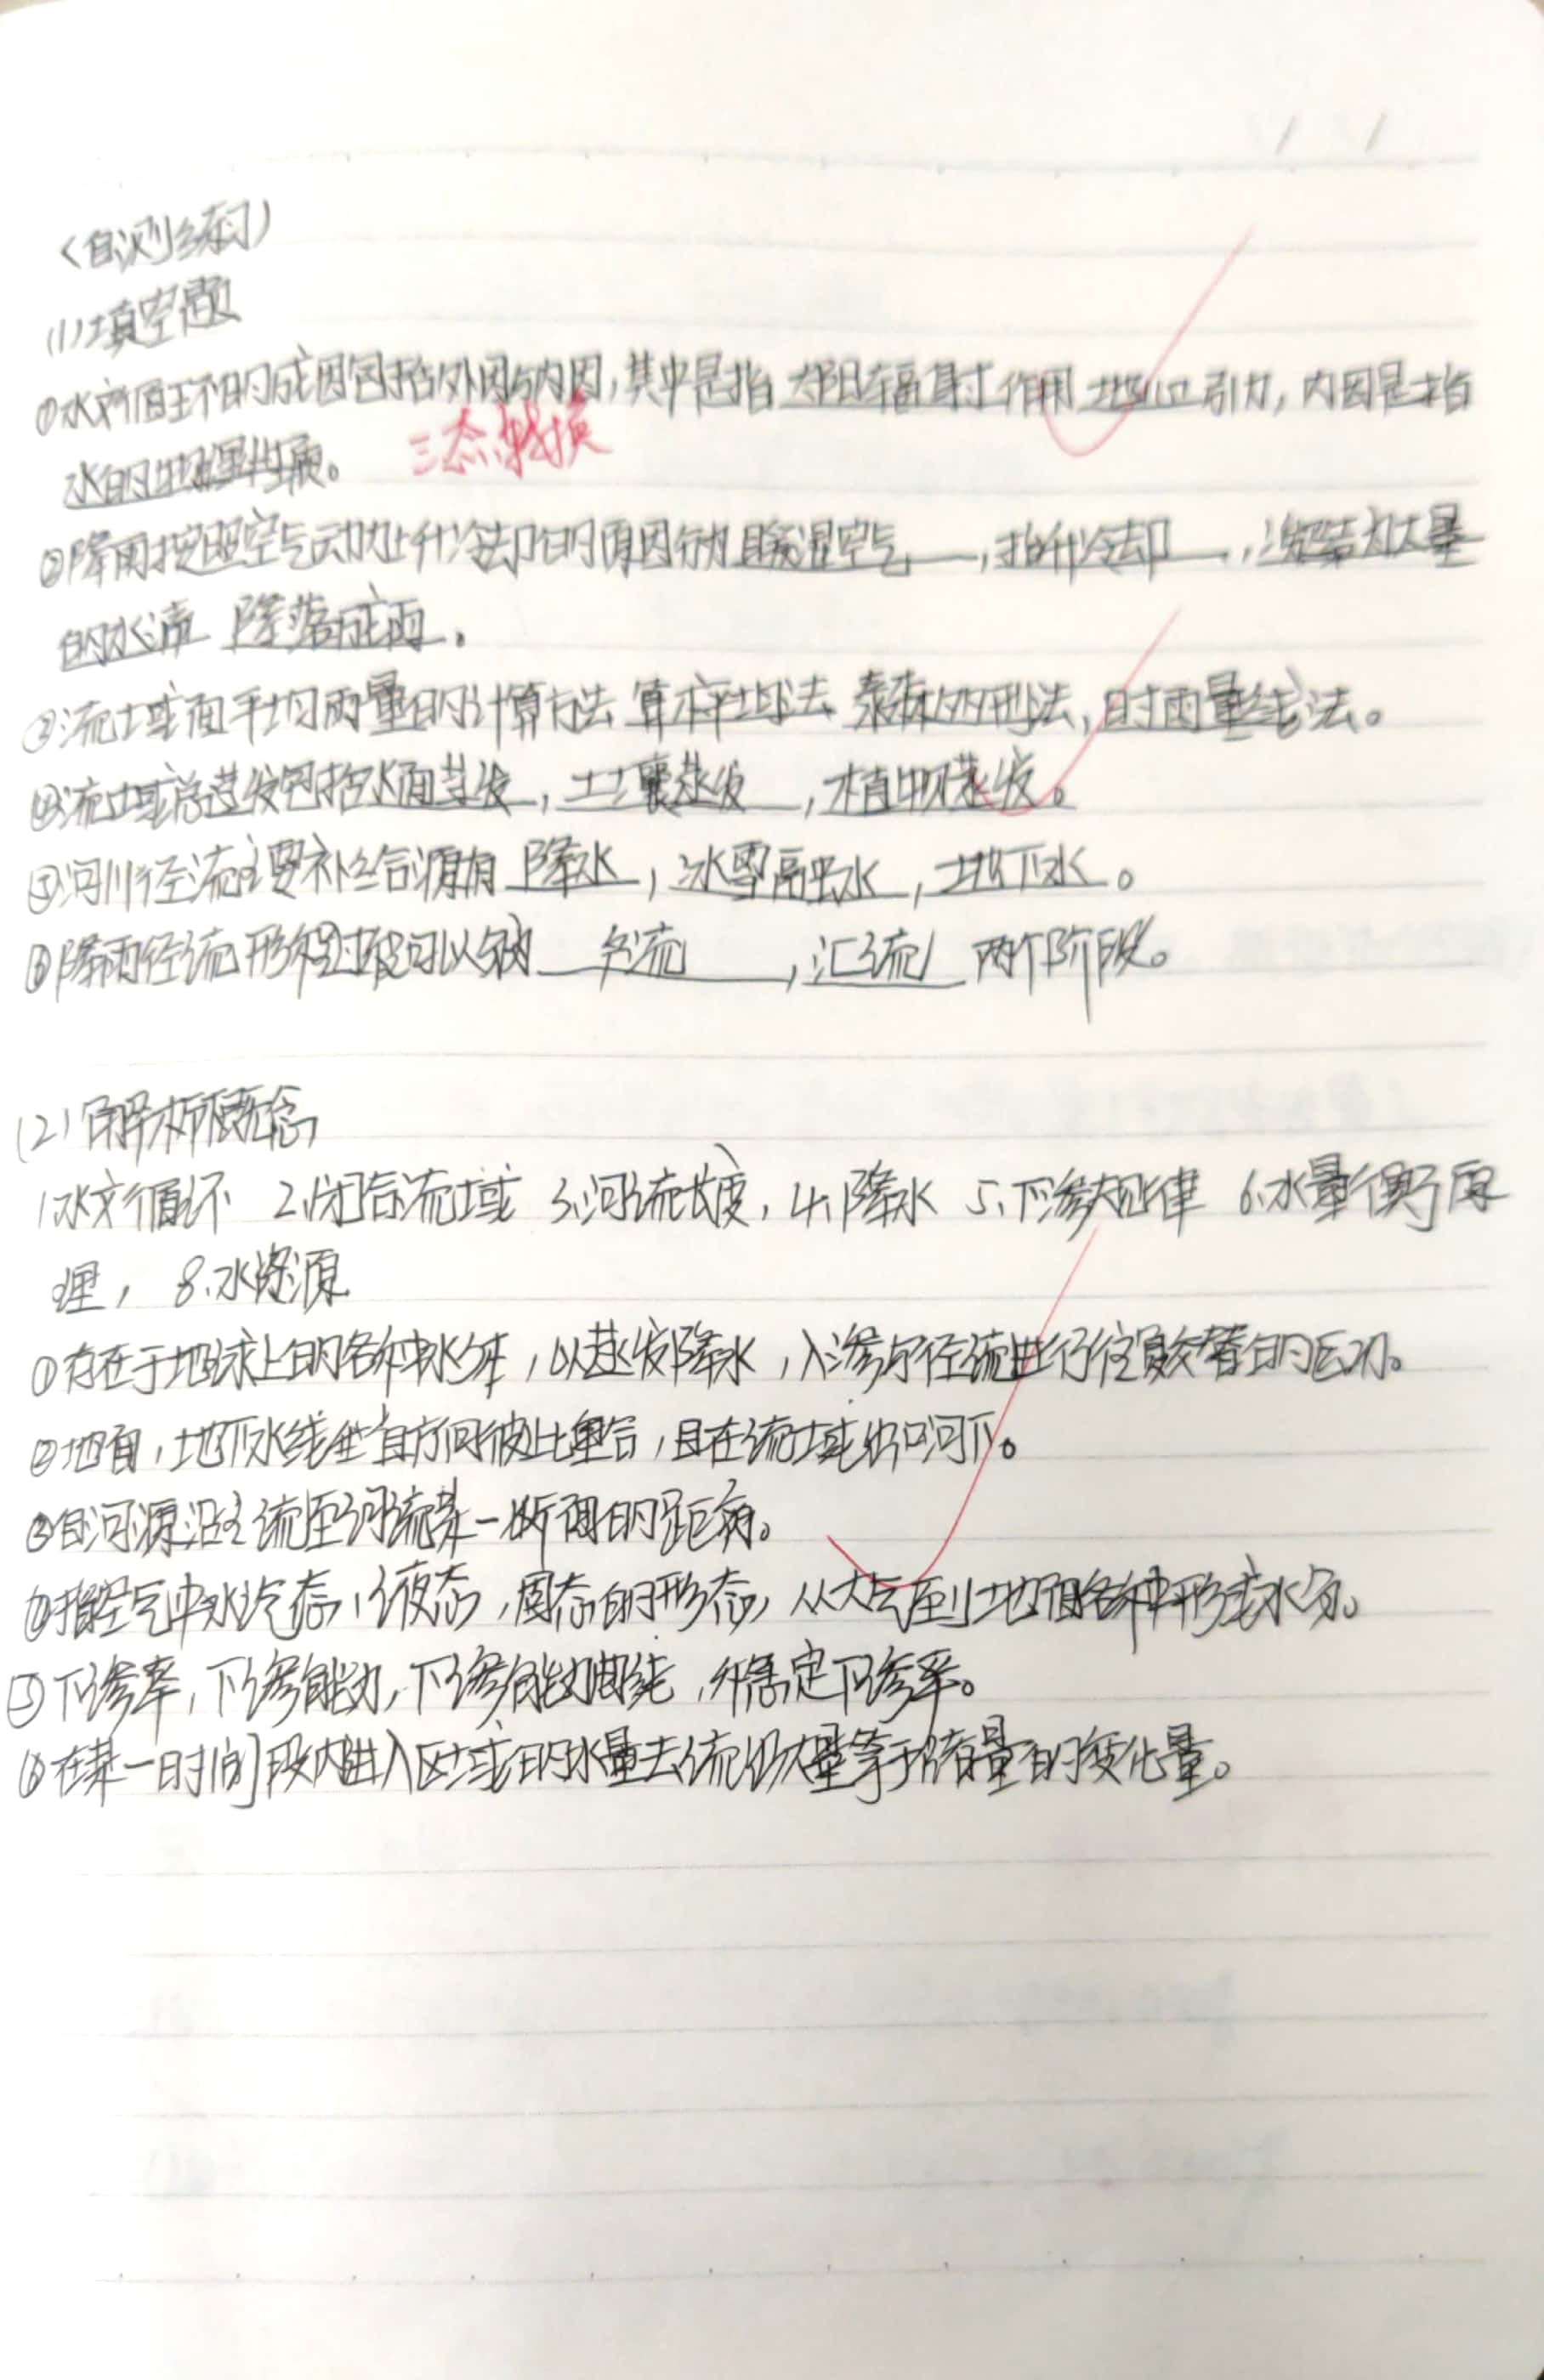 <自测练习)
(1)填空题
①水文循环的成因包括外因与内因,其中是指 太阳辐射作用 地心引力,内因是指
三态转换
水的物理性质。
②降雨按照空气动力上升冷却的原因分为 暖湿空气,抬升冷却,凝结为大量
的水滴 降落成雨。
③流域面平均雨量的计算方法 算术平均法 泰森多边形法,时雨量线法。
④流域总蒸发包括水面蒸发,土壤蒸发,植物蒸发。
⑤河川径流主要补给源有 降水,冰雪融水,地下水。
⑥降雨径流形成过程可以分为 产流,汇流 两个阶段。
(2)解析概念
1.水文循环 2.闭合流域 3.河流长度, 4.降水 5.下渗规律 6.水量平衡原
理, 8.水资源
①存在于地球上的各种水体,以蒸发降水,入渗与径流进行往复交替的运动。
②地面,地下水线垂直方向彼此重合,且在流域出口河下。
③自河源沿主流至河流某一断面的距离。
④指空气中水汽态,液态,固态的形态,从大气到地面各种形式水分。
⑤下渗率,下渗能力,下渗能力曲线,稳定下渗率。
⑥在某一时间段内进入区域的水量去流出水量等于储量的变化量。